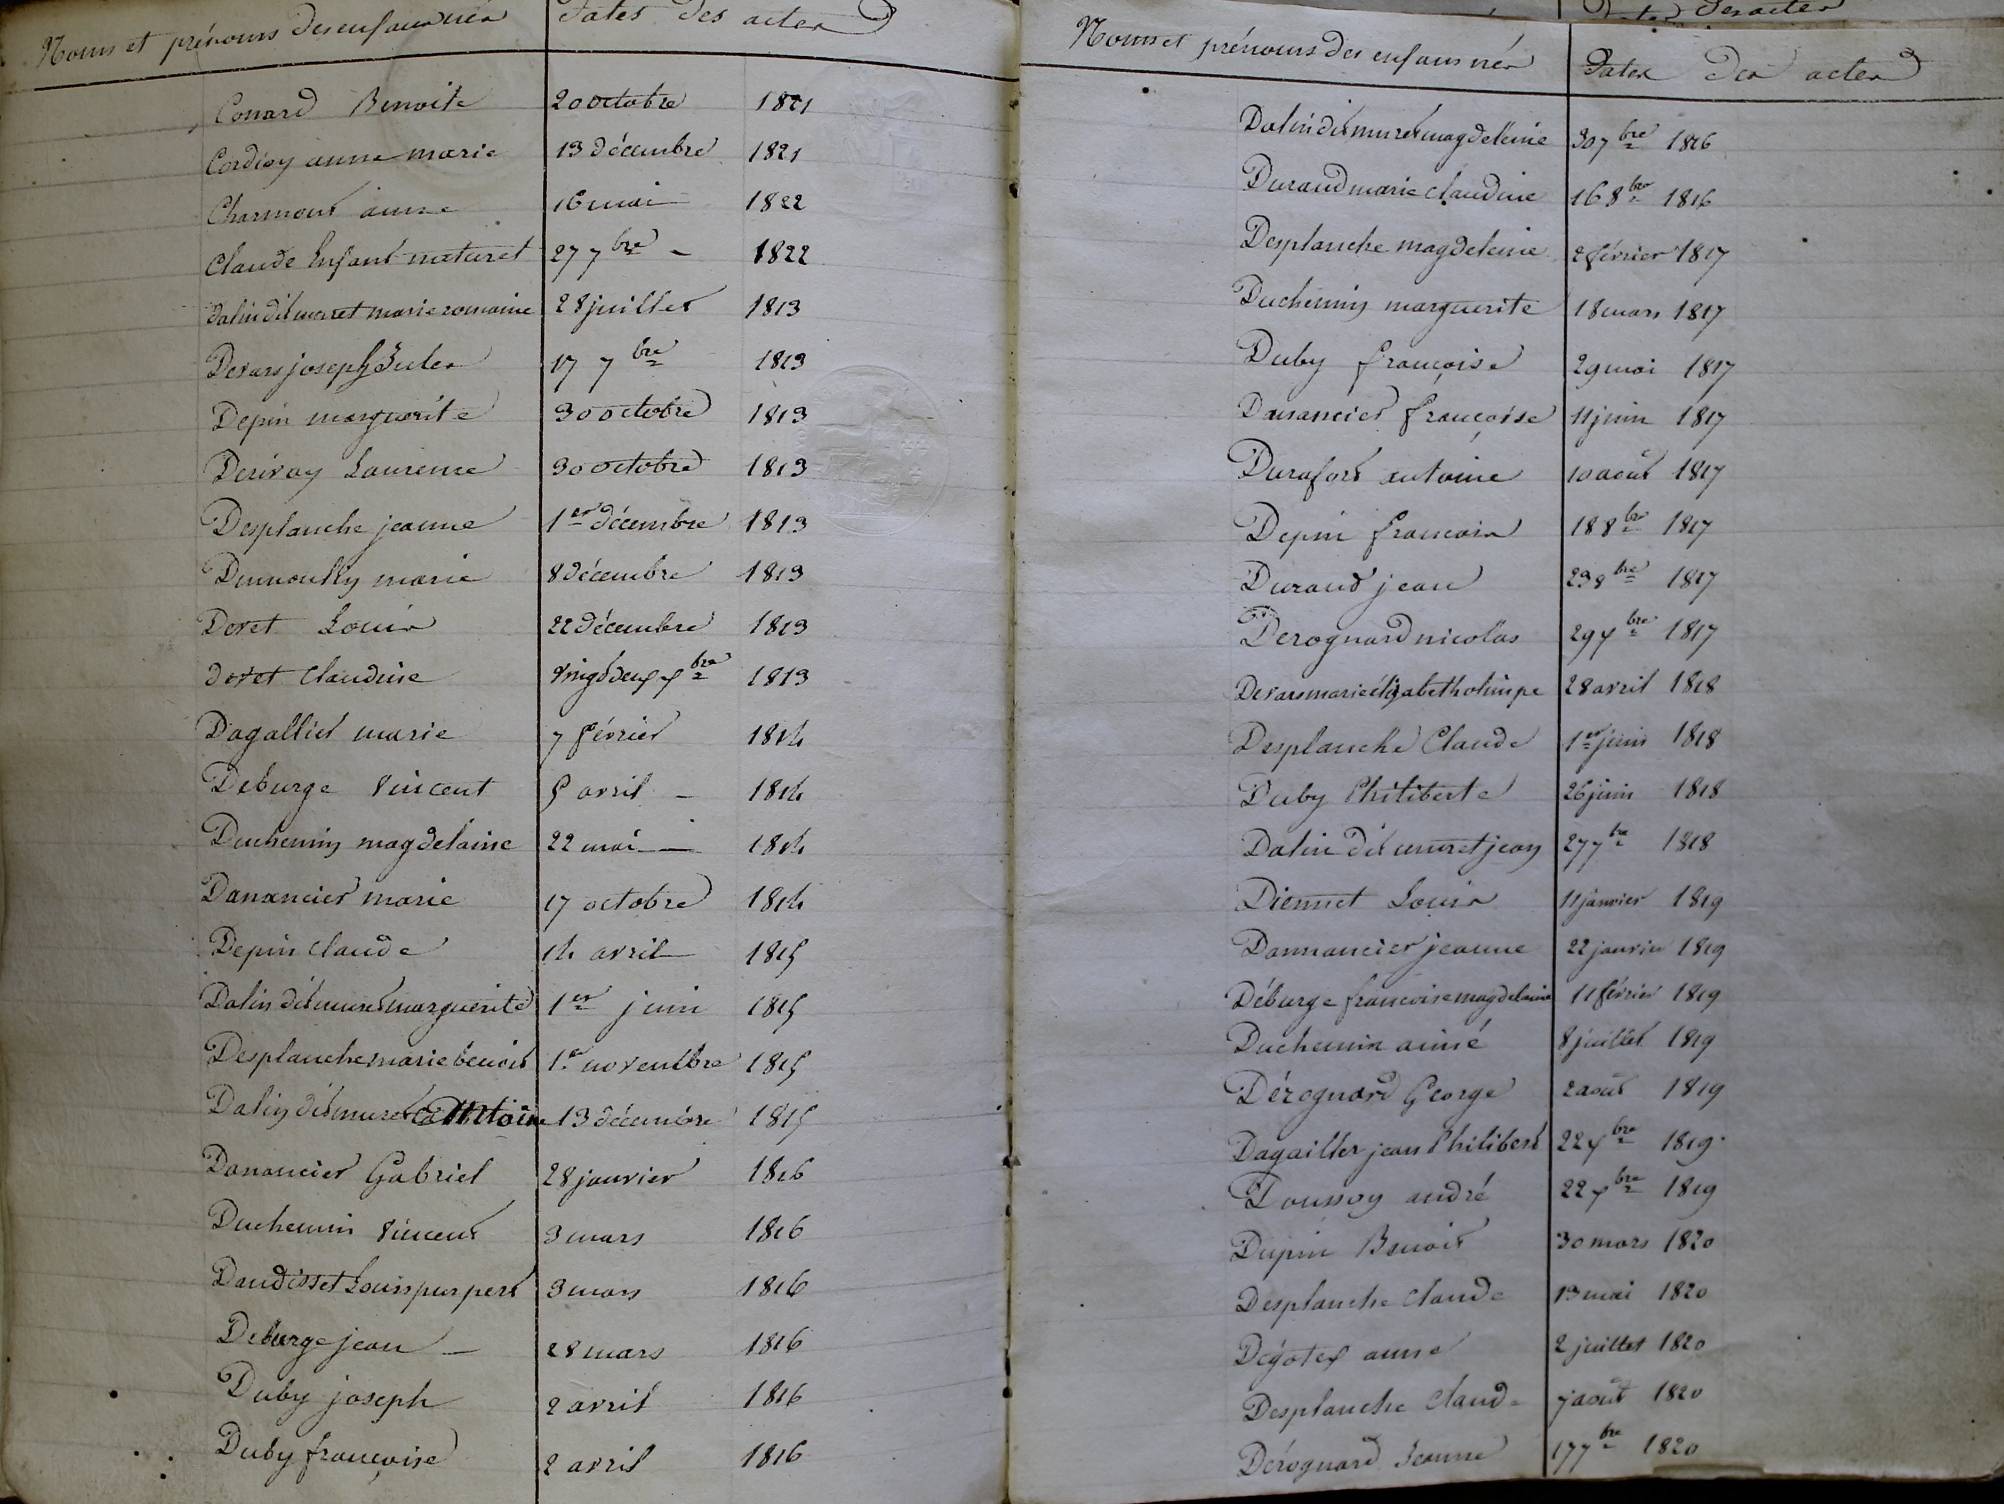 Noms et prénoms des enfans nés dates des actes
Conard Benoite 20 octobre 1821
Cordioy anne marie 13 décembre 1821
Charmont anne 16 mai 1822
Claude Enfant naturel 27 7bre - 1822
dalin dit muret marie romaine 28 juillet 1813
Devars joseph Jules 17 7bre 1813
Depin marguerite 30 octobre 1813
Derivoy Laurence 30 octobre 1813
Desplanche jeanne 1er décembre 1813
Dumoulin marie 8 décembre 1813
Doret Louis 22 décembre 1813
doret Claudine vingt deux xbre 1813
Dagallier marie 7 février 1814
Deburge Vincent 5 avril - 1814
Duchemin magdelaine 22 mai - 1814
Danancier marie 17 octobre 1814
Depin Claude 14 avril 1815
Dalin dit muret marguerite 1er juin 1815
Desplanche marie benoit 1er novembre 1815
Dalin dit muret Antoine 13 décembre 1815
Danancier Gabriel 28 janvier 1816
Duchemin Vincent 3 mars 1816
Daudisset Louis purpert 3 mars 1816
Deburge jean - 28 mars 1816
Duby joseph 2 avril 1816
Duby françoise 2 avril 1816
des actes
Noms et prénoms des enfans nés Dates des actes
Dalin dit muret magdeleine 30 7bre 1816
Durand marie Claudine 16 8bre 1816
Desplanche magdeleine 2 février 1817
Duchemin marguerite 18 mars 1817
Duby françoise 29 mai 1817
Danancier françoise 11 juin 1817
Durafort antoine 10 août 1817
Depin françois 18 8bre 1817
Durand jean 23 8bre 1817
Derognard nicolas 29 xbre 1817
Devars marie élizabeth olimpe 28 avril 1818
Desplanche Claude 1er juin 1818
Duby Philiberte 26 juin 1818
Dalin dit muret jean 27 7bre 1818
Diennet Louis 11 janvier 1819
Dannancier jeanne 22 janvier 1819
Déburge francoise magdelaine 11 février 1819
Duchemin aimé 8 juillet 1819
Dérognard George 2 août 1819
Dagallier jean Philibert 22 xbre 1819
Doussoy andré 22 xbre 1819
Dupin Benoit 30 mars 1820
Desplanche Claude 13 mai 1820
Dégotex anne 2 juillet 1820
Desplanche Claude 7 août 1820
Dérognard Jeanne 17 7bre 1820